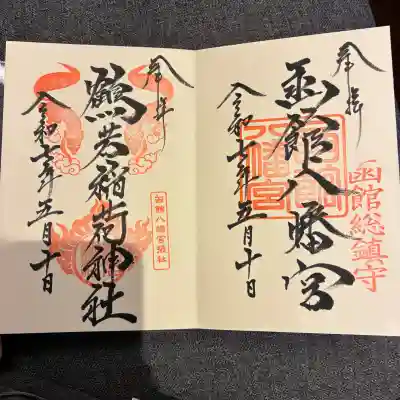 奉拝
函館八幡宮
函館八幡宮
函館総鎮守
令和七年五月十日
奉拝
鶴若稲荷神社
函館八幡宮末社
令和七年五月十日